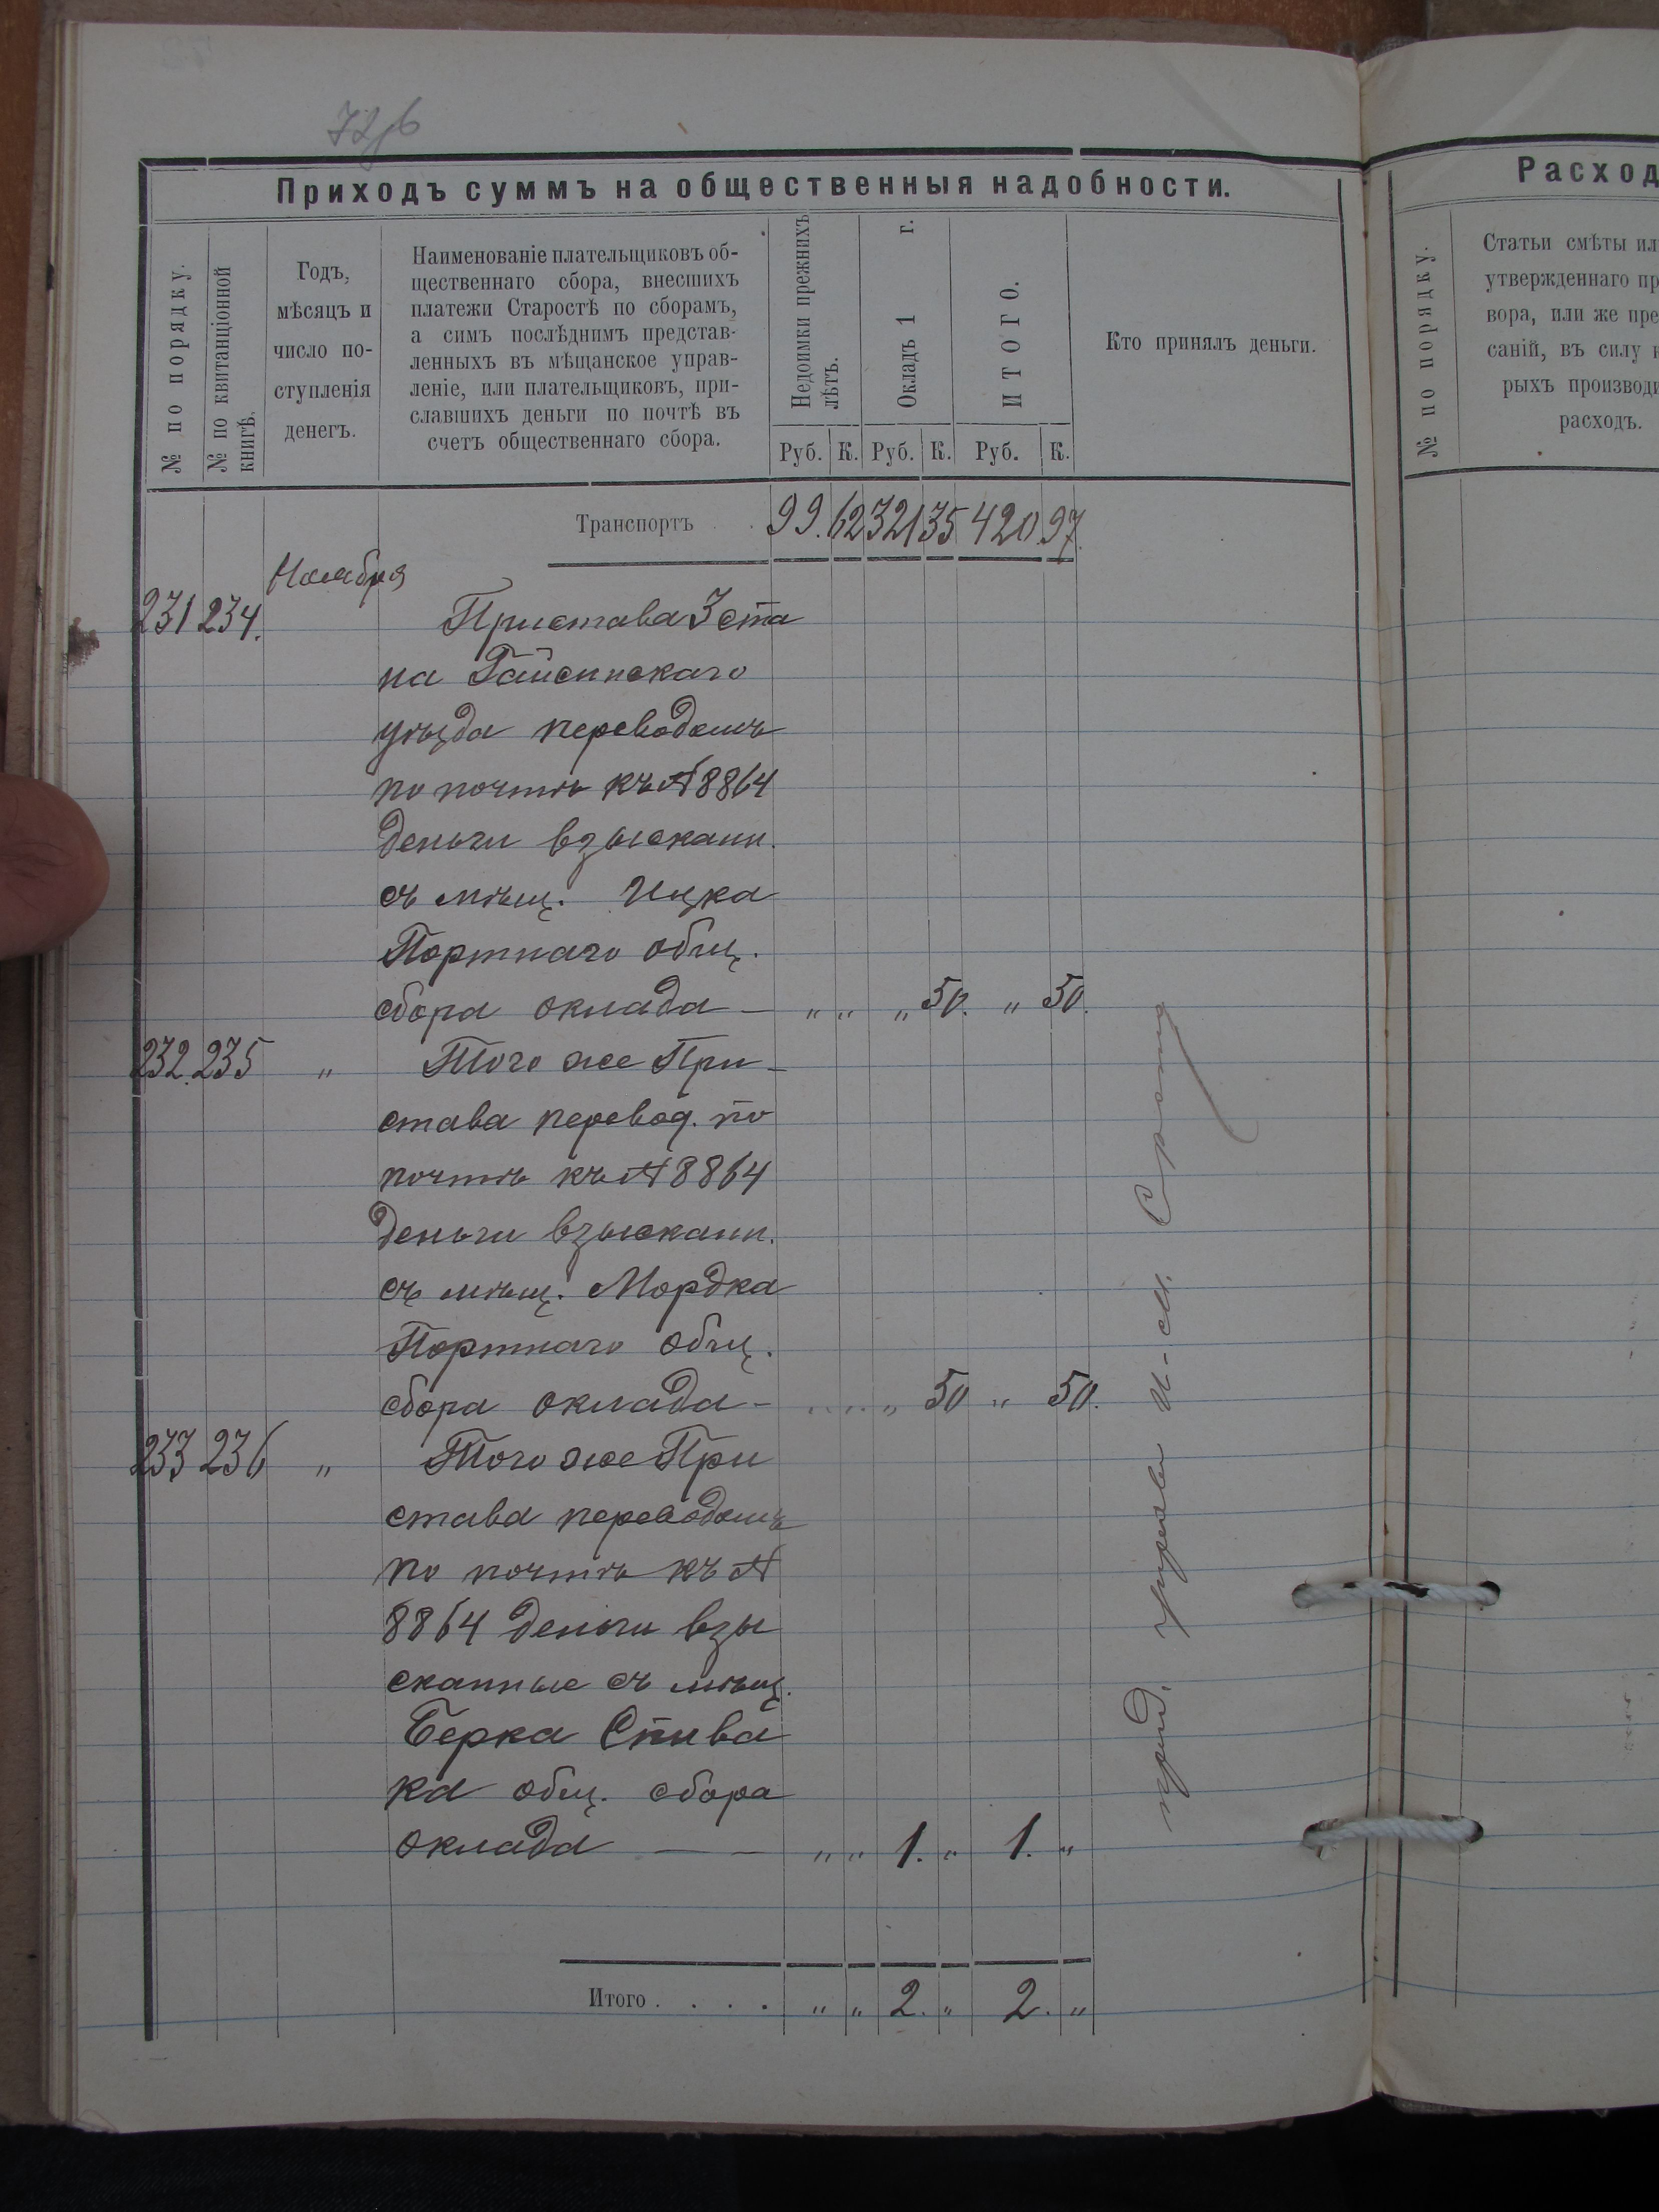 72об
Приходъ суммъ на общественныя надобности.
№ по порядку.
№ по квитанціонной
книгѣ.
Годъ,
мѣсяцъ и
число по-
ступленія
денегъ.
Наименованіе плательщиковъ об-
щественнаго сбора, внесшихъ
платежи Старостѣ по сборамъ,
а симъ послѣднимъ представ-
ленныхъ въ мѣщанское управ-
леніе, или плательщиковъ, при-
славшихъ деньги по почтѣ въ
счетъ общественнаго сбора.
Недоимки прежнихъ
лѣтъ.
Окладъ 1 г.
ИТОГО.
Руб. К. Руб. К. Руб. К.
Кто принялъ деньги.
Транспортъ . . 99. 62 321 35 420. 97.
Ноября
231 234. Пристава 3 ста
на Гайсинскаго
уѣзда переводомъ
по почтѣ къ № 8864
деньги взыскани.
съ мѣщ. Ицка
Портнаго общ.
сбора оклада — „ „ „ 50. „ 50.
232. 235 „ Того же При-
става перевод. по
почтѣ къ № 8864
деньги взыскани.
съ мѣщ. Мордка
Портнаго общ.
сбора оклада - „ „ „ 50 „ 50.
233 236 „ Того же При
става переводомъ
по почтѣ къ №
8864 деньги взы
сканные съ мѣщ.
Берка Спива
ка общ. сбора
оклада — — „ „ 1. „ 1. „
Итого . . . . „ „ 2. „ 2. „
Расход
№ по порядку.
Статьи смѣты ил
утвержденнаго пр
вора, или же пре
саній, въ силу к
рыхъ производи
расходъ.